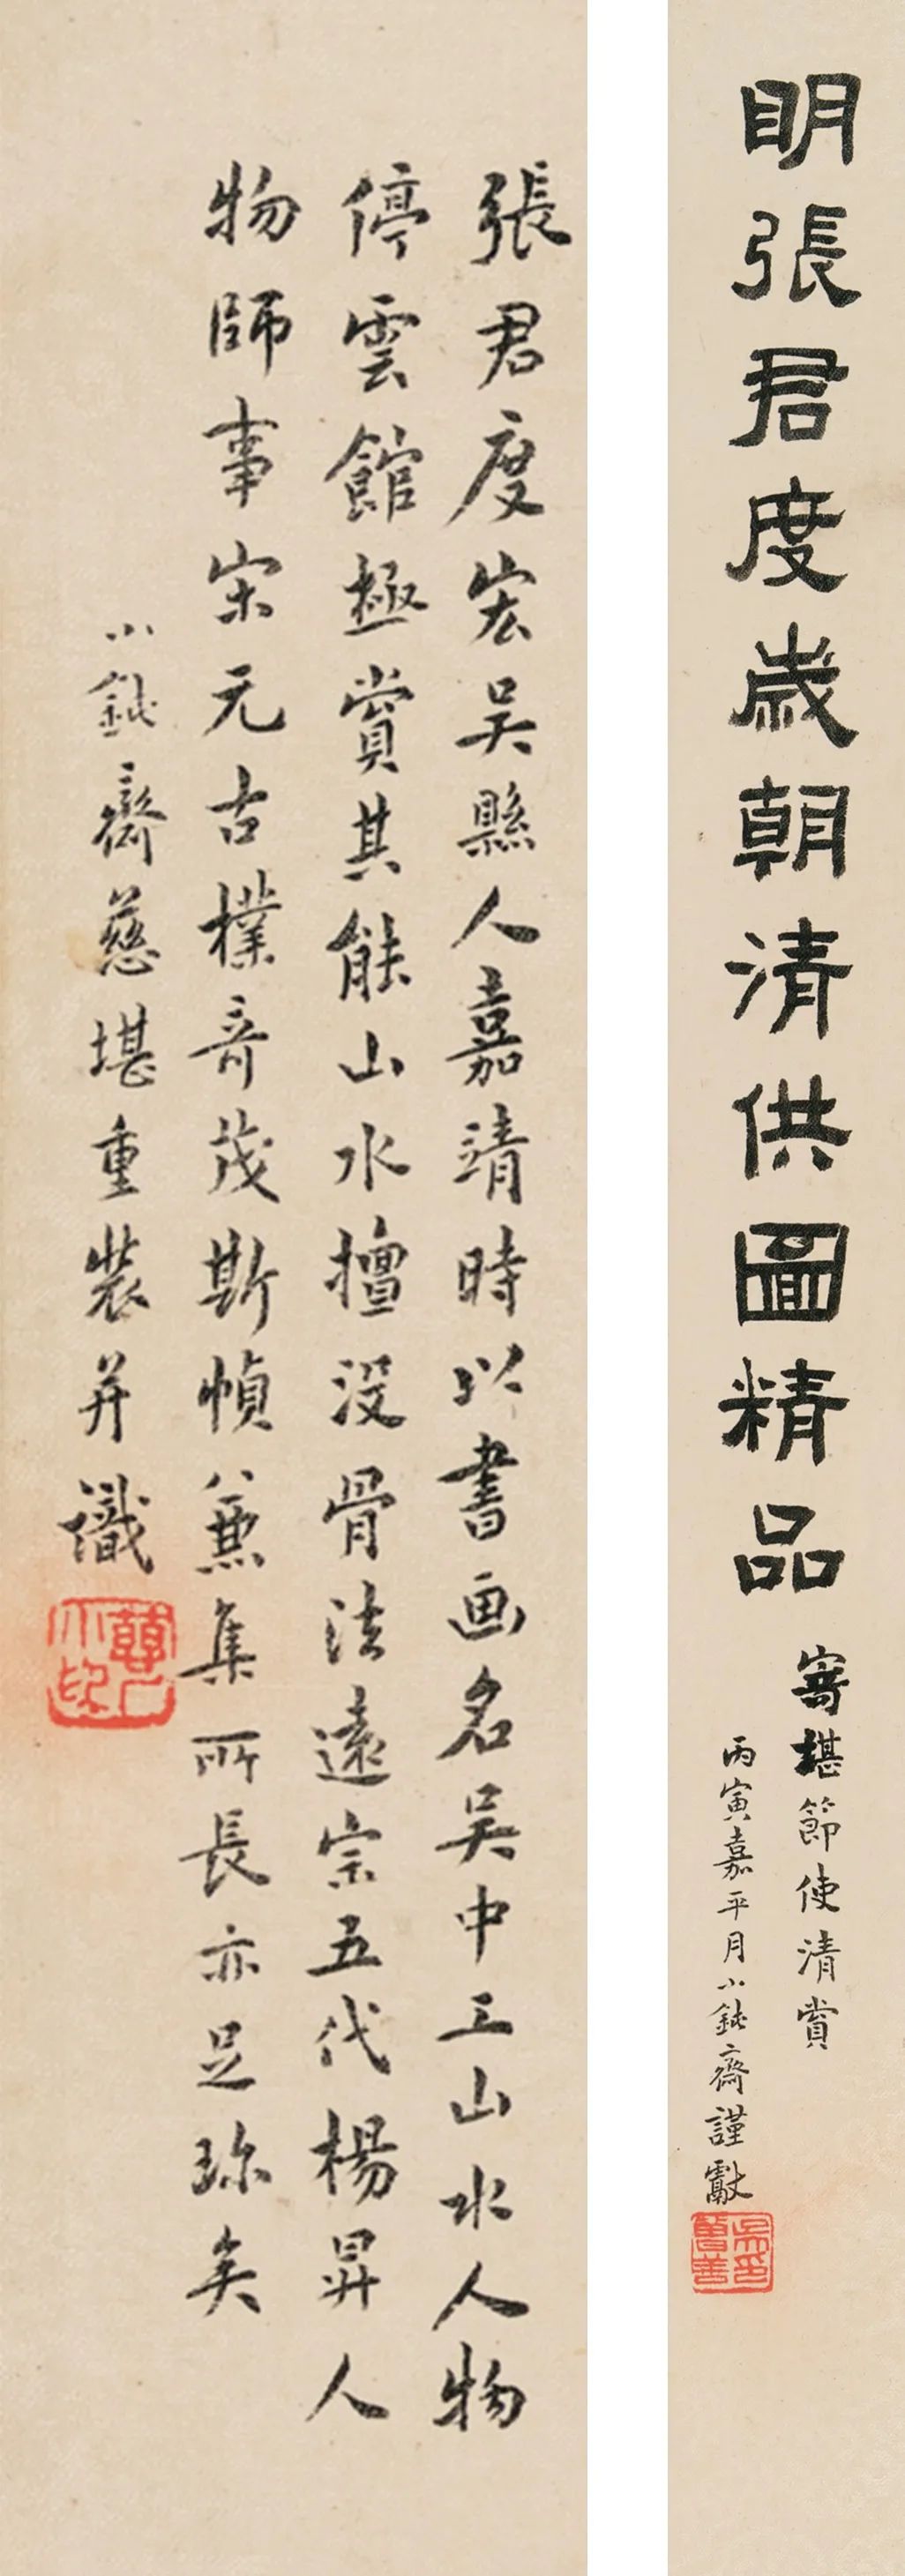 明張君度歲朝清供圖精品
寄堪節使清賞
丙寅嘉平月小鈍齋謹獻
張君度宏吳縣人嘉靖時以書画名吳中工山水人物
停雲館極賞其能山水擅没骨法遠宗五代楊昇人
物師事宋元古樸奇茂斯幀兼集所長亦足珎矣
小鈍齋慈堪重裝并識